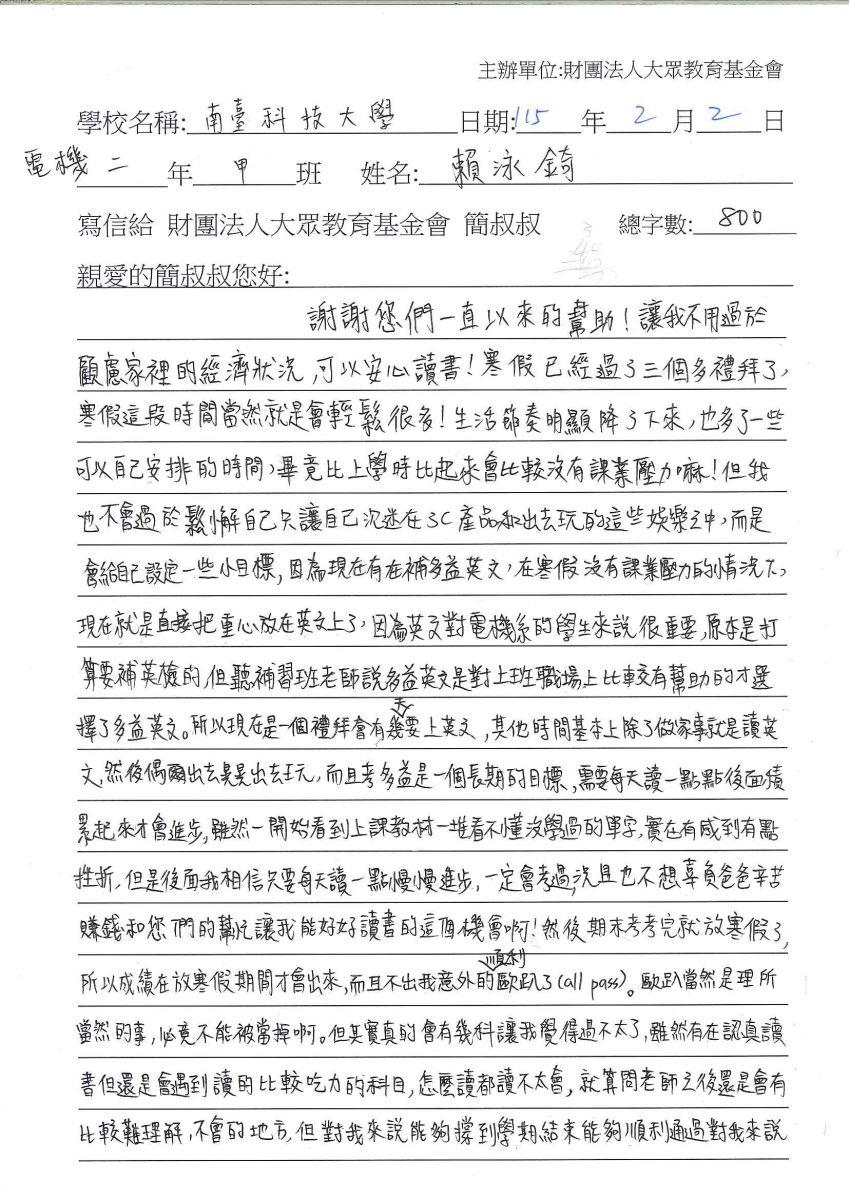 主辦單位:財團法人大眾教育基金會
學校名稱: 南臺科技大學 日期:115 年 2 月 2 日
電機二 年 甲 班 姓名: 賴泳錡
寫信給 財團法人大眾教育基金會 簡叔叔 總字數: 800
親愛的簡叔叔您好:
謝謝您們一直以來的幫助!讓我不用過於
顧慮家裡的經濟狀況,可以安心讀書!寒假已經過了三個多禮拜了,
寒假這段時間當然就是會輕鬆很多!生活節奏明顯降了下來,也多了一些
可以自己安排的時間,畢竟比上學時比起來會比較沒有課業壓力嘛!但我
也不會過於鬆懈自己只讓自己沉迷在3C產品和出去玩的這些娛樂之中,而是
會給自己設定一些小目標,因為現在有在補多益英文,在寒假沒有課業壓力的情況下,
現在就是直接把重心放在英文上了,因為英文對電機系的學生來說很重要,原本是打
算要補英檢的,但聽補習班老師說多益英文是對上班職場上比較有幫助的才選
擇了多益英文。所以現在是一個禮拜會有幾天要上英文,其他時間基本上除了做家事就是讀英
文,然後偶爾出去晃晃出去玩,而且考多益是一個長期的目標,需要每天讀一點點後面積
累起來才會進步,雖然一開始看到上課教材一堆看不懂沒學過的單字,實在有感到有點
挫折,但是後面我相信只要每天讀一點慢慢進步,一定會考過,況且也不想辜負爸爸辛苦
賺錢和您們的幫忙讓我能好好讀書的這個機會啊!然後期末考考完就放寒假了,
所以成績在放寒假期間才會出來,而且不出我意外的順利歐趴了(all pass)。歐趴當然是理所
當然的事,必竟不能被當掉啊。但其實真的會有幾科讓我覺得過不太了,雖然有在認真讀
書但還是會遇到讀的比較吃力的科目,怎麼讀都讀不太會,就算問老師之後還是會有
比較難理解,不會的地方,但對我來說能夠撐到學期結束能夠順利通過對我來說